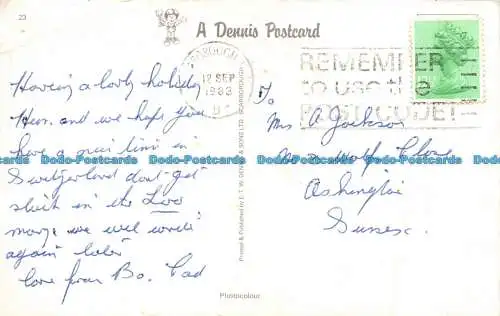 23
A Dennis Postcard
SCARBOROUGH
12 SEP
1983
REMEMBER
to use the
POSTCODE!
Having a lovely holiday
Here. and we hope you
have a nice time in
Switzerland dont get
stuck in the Loo
maye we will write
again later
love from Bo. Dad
To
Mrs A Jackson
Wolf Close
Ashington
Sussex.
Printed & Published by E. T. W. DENNIS & SONS LTD. SCARBOROUGH
Photocolour
Dodo-Postcards Dodo-Postcards Dodo-Postcards Dodo-Postcards Dodo-Postcards